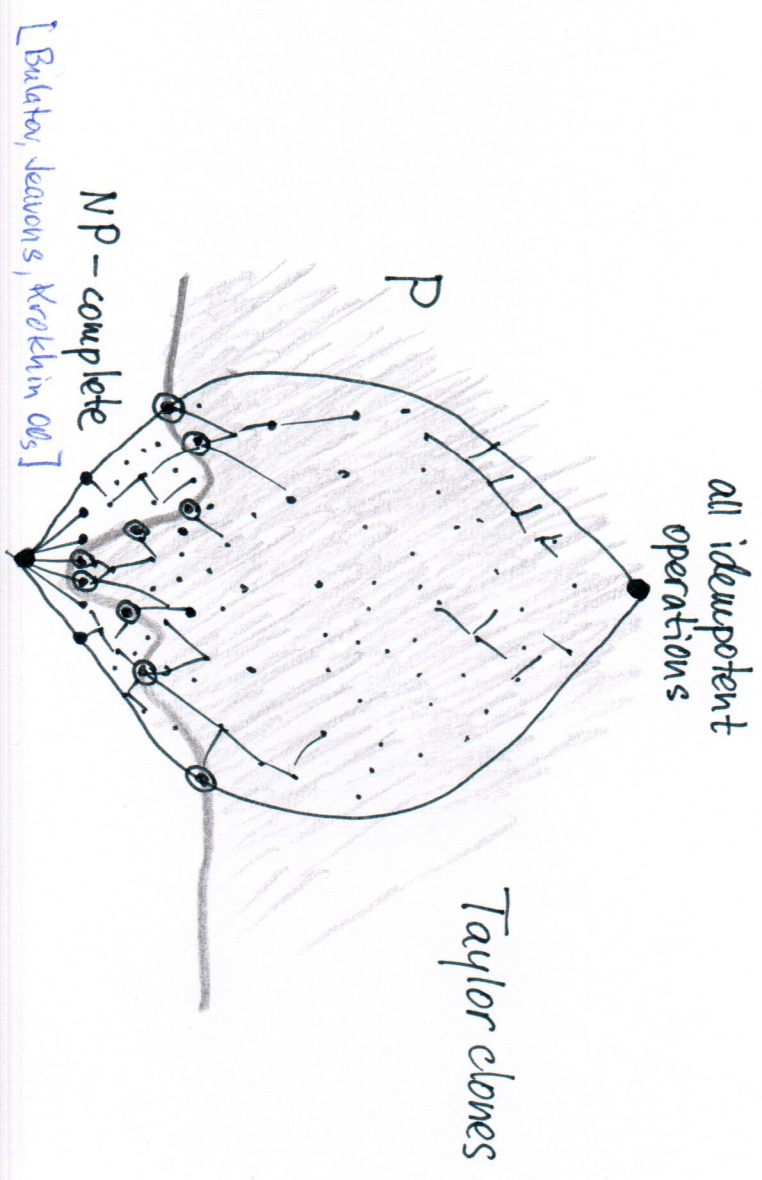 all idempotent
operations
P
Taylor clones
NP-complete
[Bulatov, Jeavons, Krokhin 05]